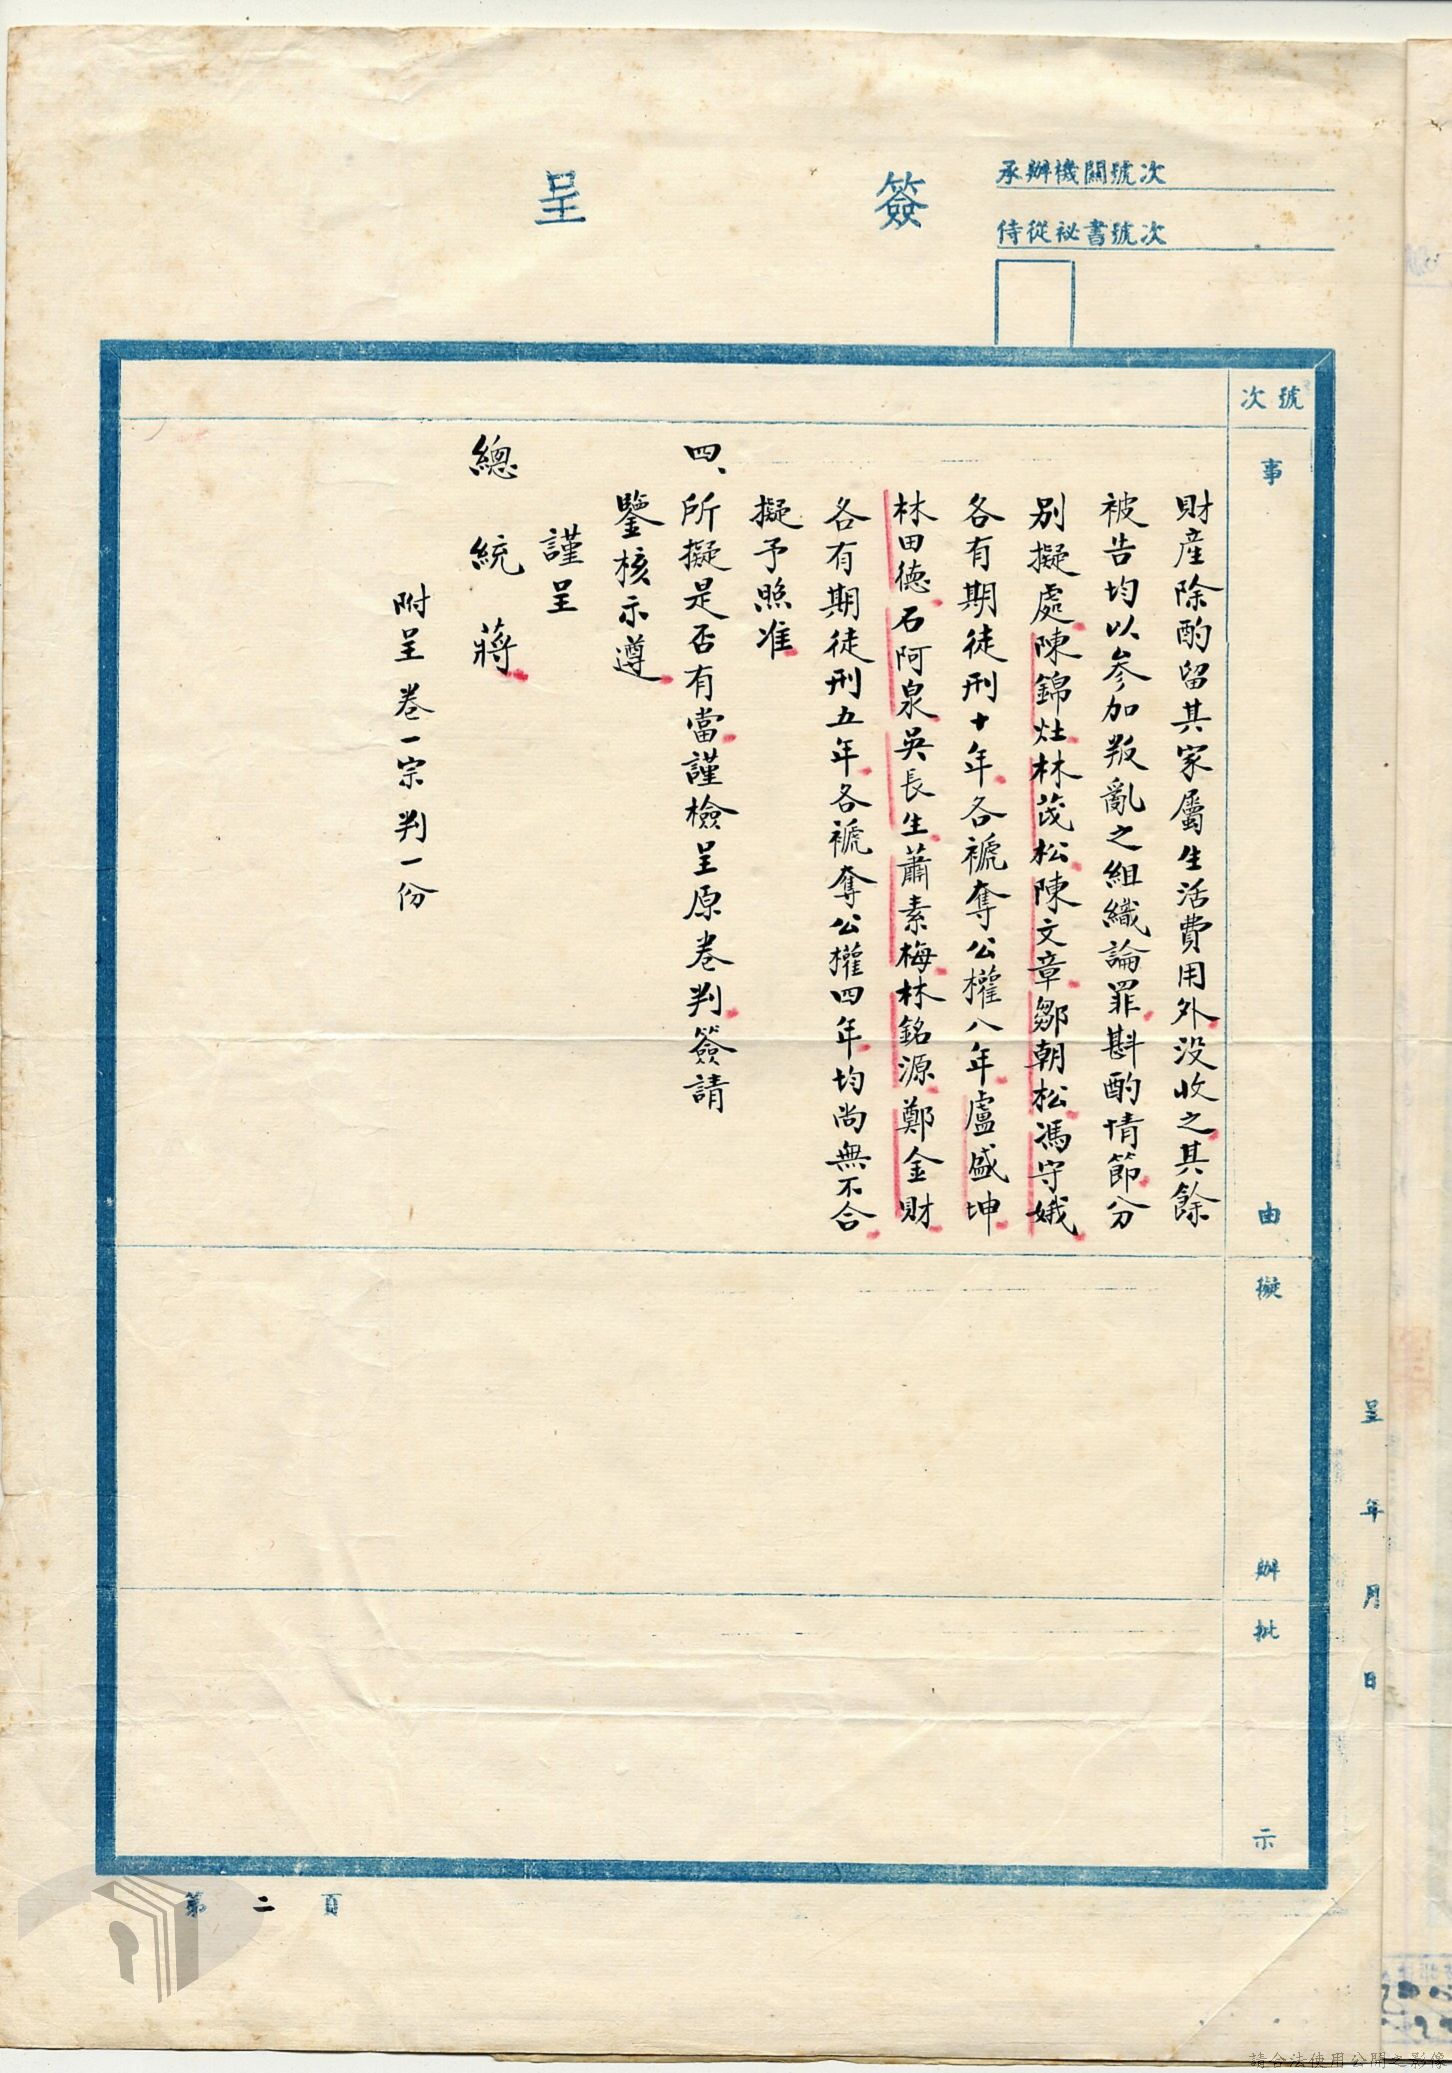 簽呈
承辦機關號次
侍從祕書號次
號次
事由
擬辦
批示
財產除酌留其家屬生活費用外沒收之其餘
被告均以參加叛亂之組織論罪斟酌情節分
別擬處陳錦灶林茂松陳文章鄒朝松馮守娥
各有期徒刑十年各褫奪公權八年盧盛坤
林田德石阿泉吳長生蕭素梅林銘源鄭金財
各有期徒刑五年各褫奪公權四年均尚無不合
擬予照准
四、所擬是否有當謹檢呈原卷判簽請
鑒核示遵
謹呈
總統蔣
附呈卷一宗判一份
呈 年 月 日
第二頁
請合法使用公開之影像